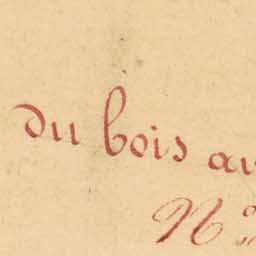 du bois av
N°